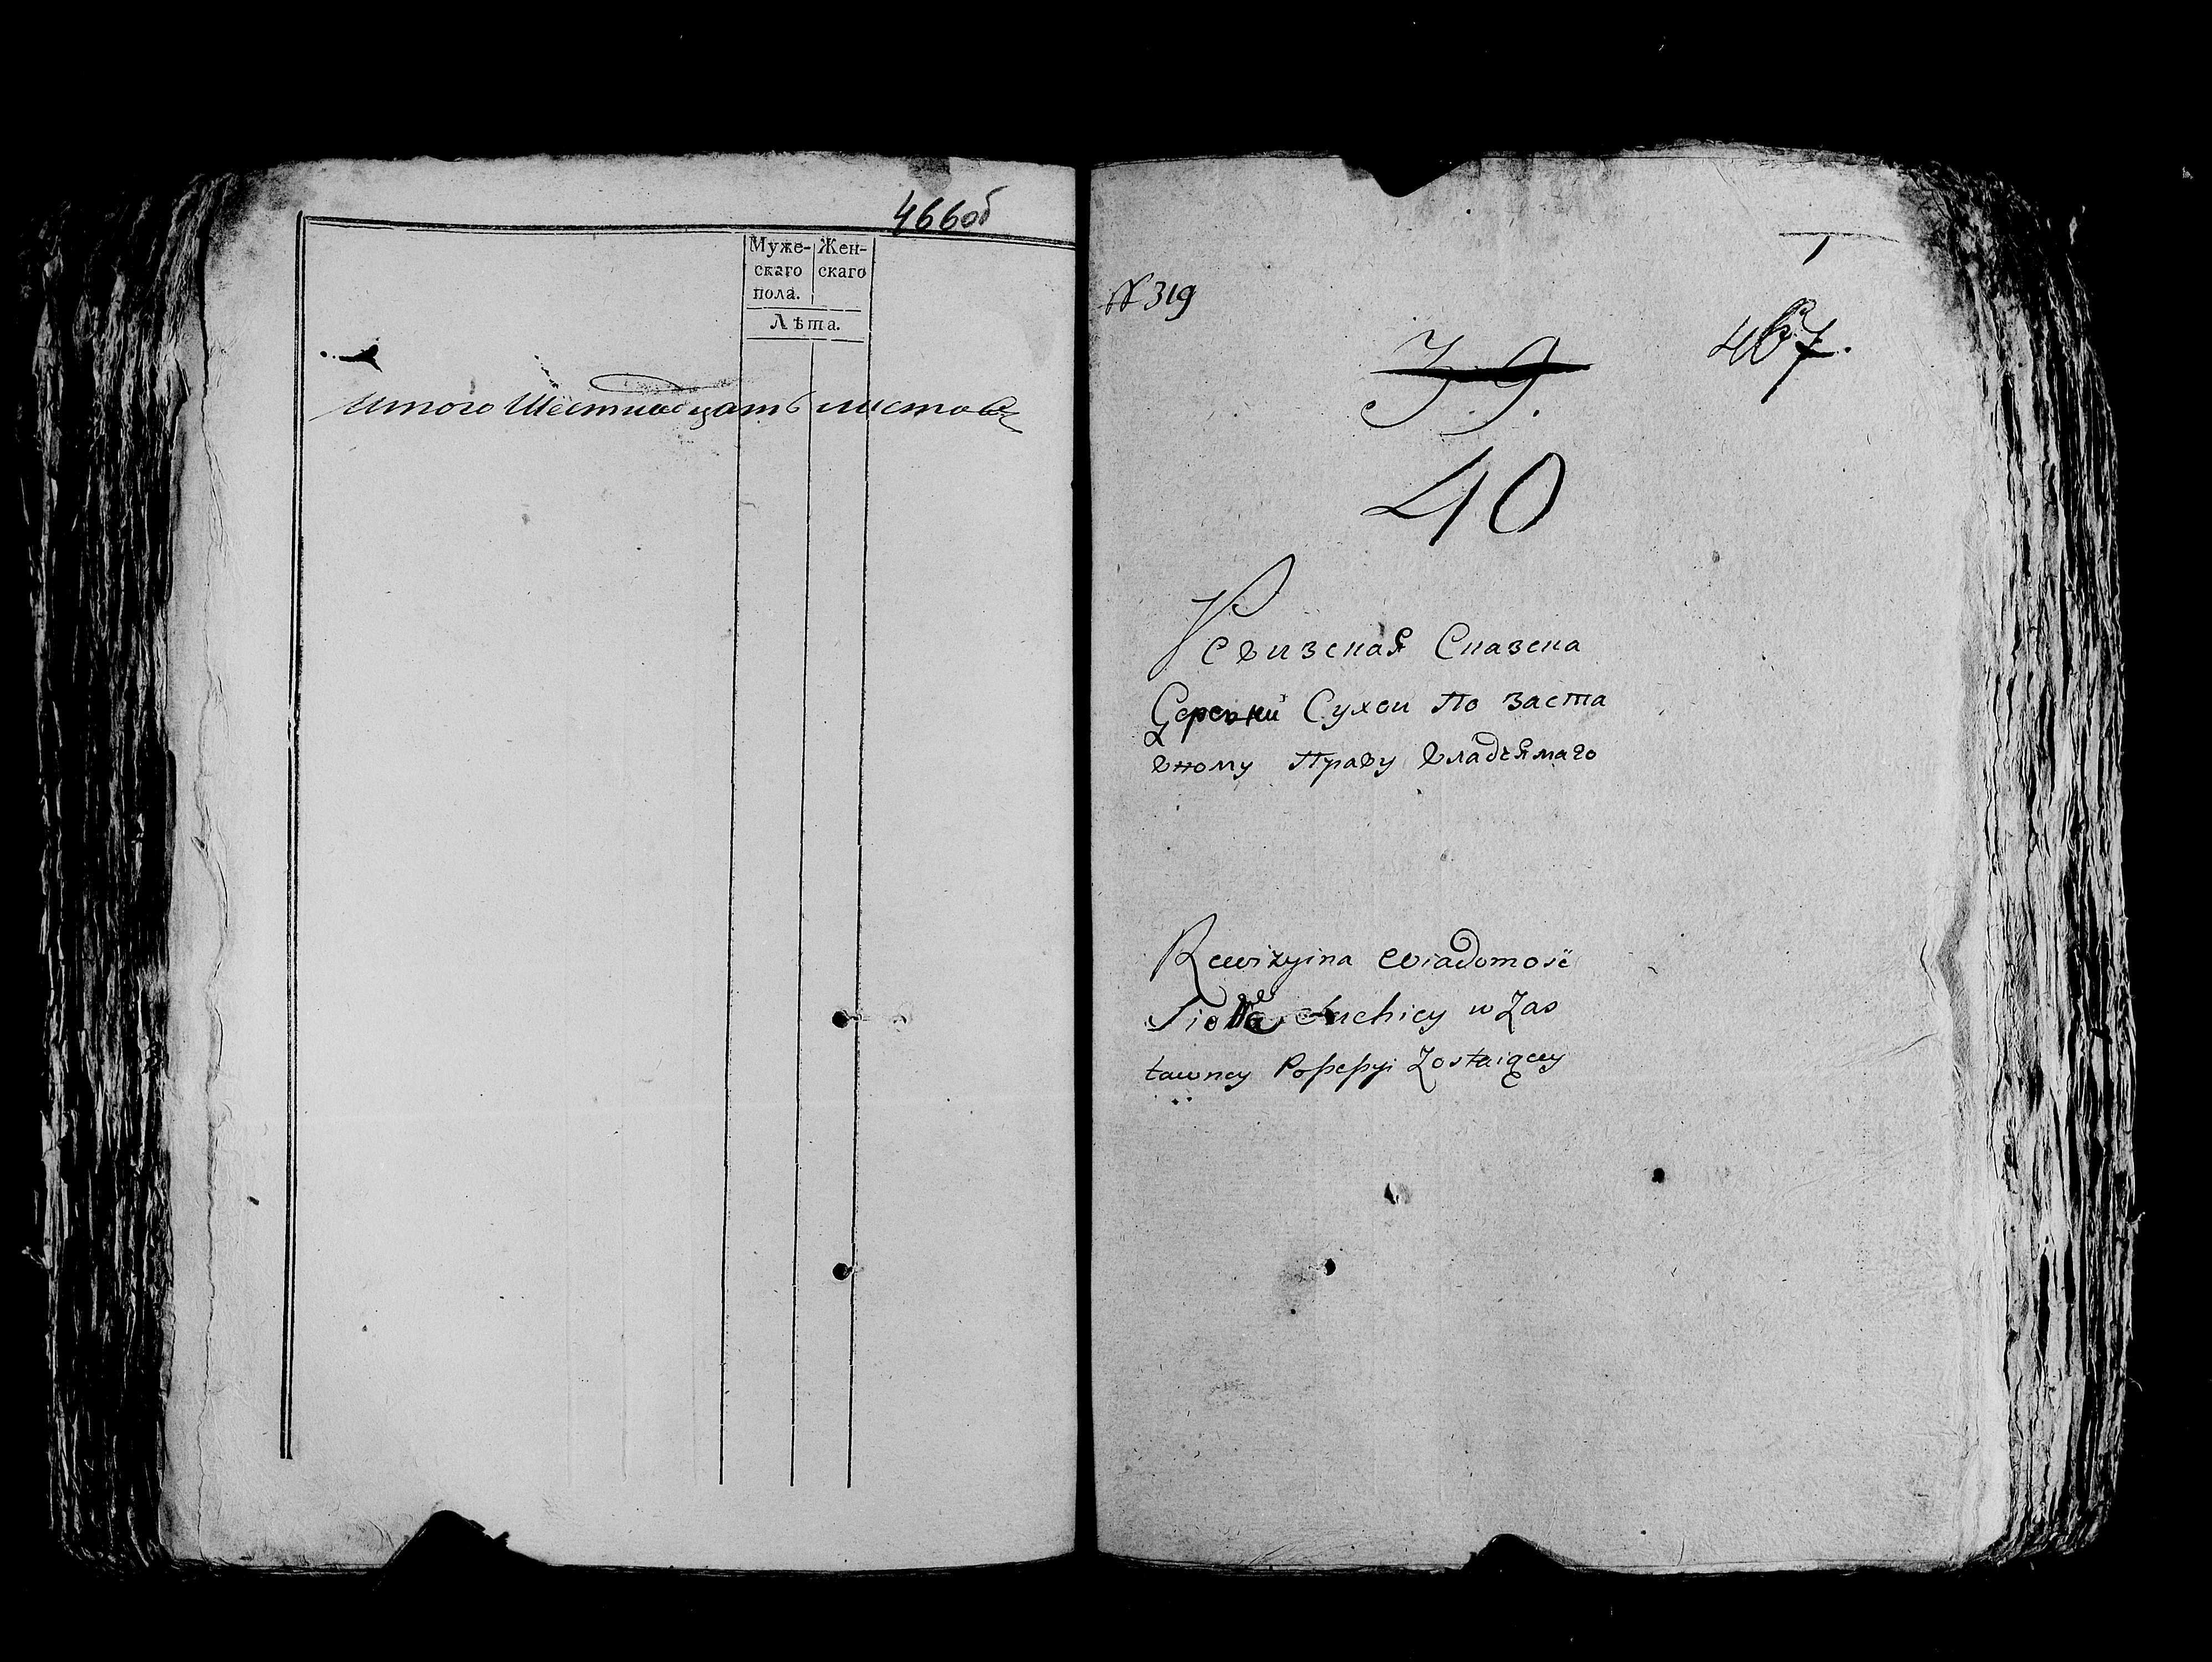 466об
Муже- Жен-
скаго скаго
пола.
Лѣта.
Итого Шестнадцать листовъ
1
№ 319
467.
39.
40
Ревизская Сказска
Деревни Сухои По заста
вному Праву владѣямаго
Rewizyina wiadomość
Sioła Suchicy w Zas
tawney Pofsefsyi Zostaiącey